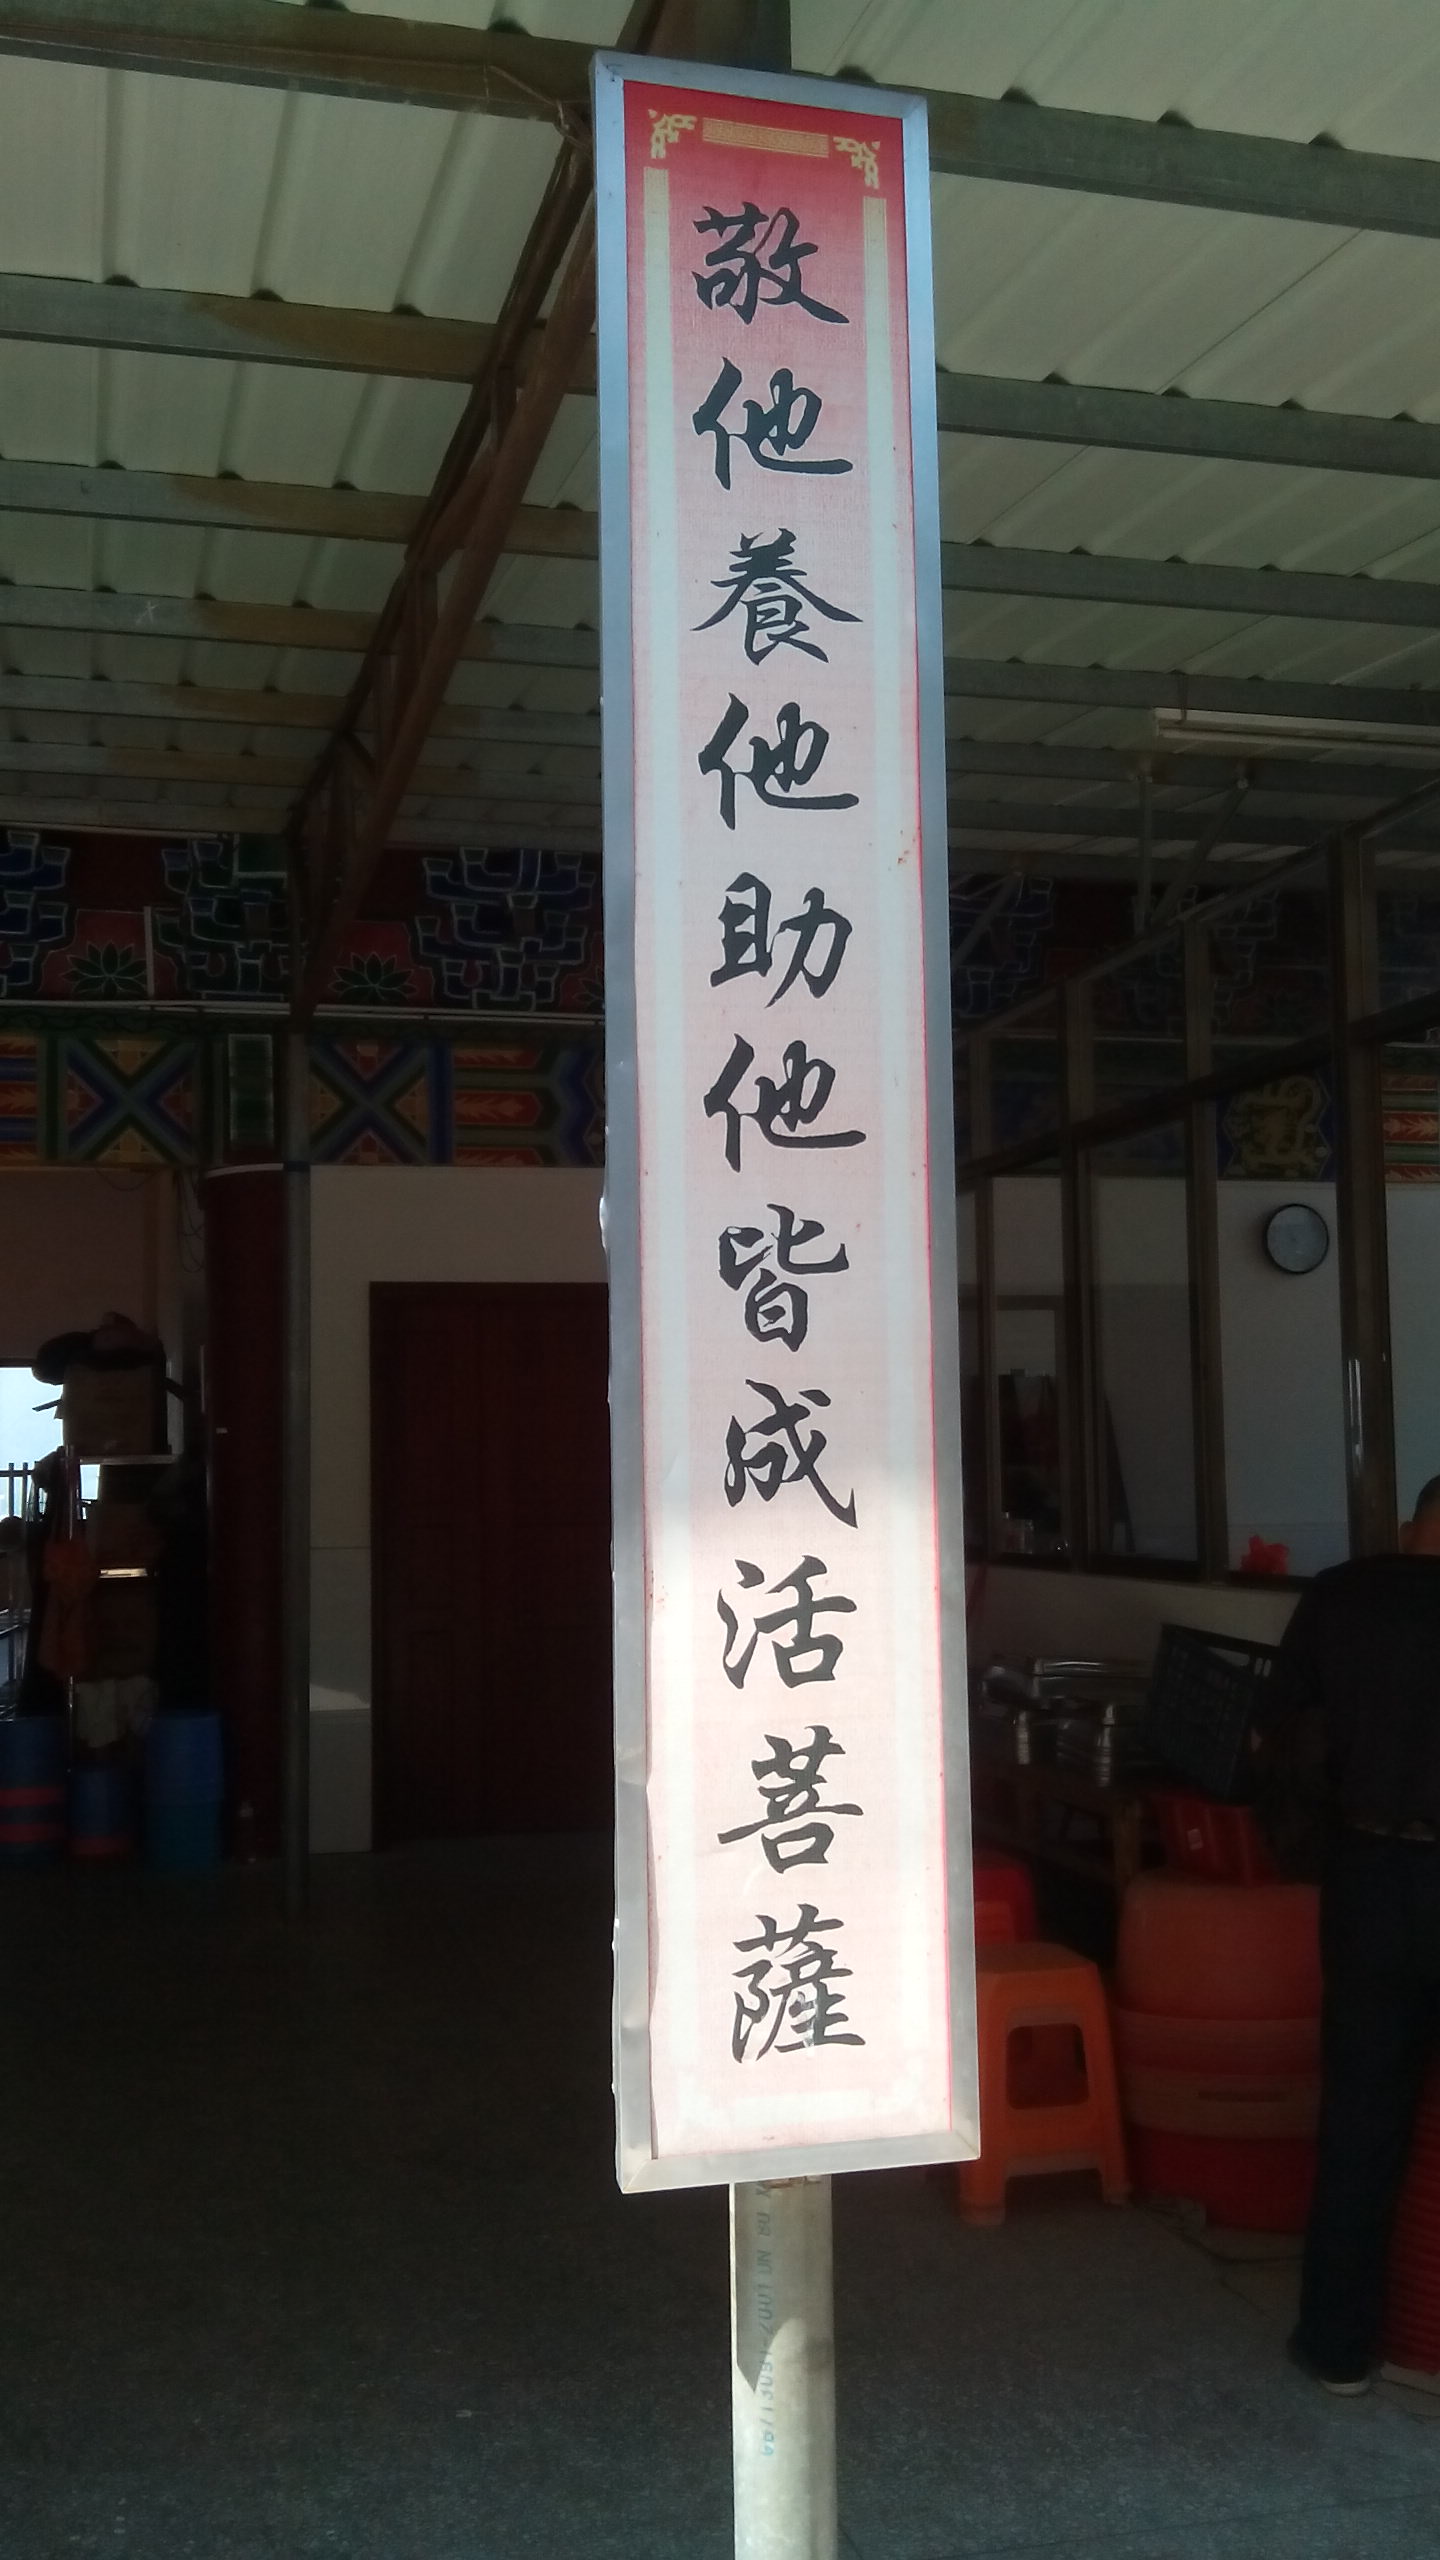 敬他養他助他皆成活菩薩